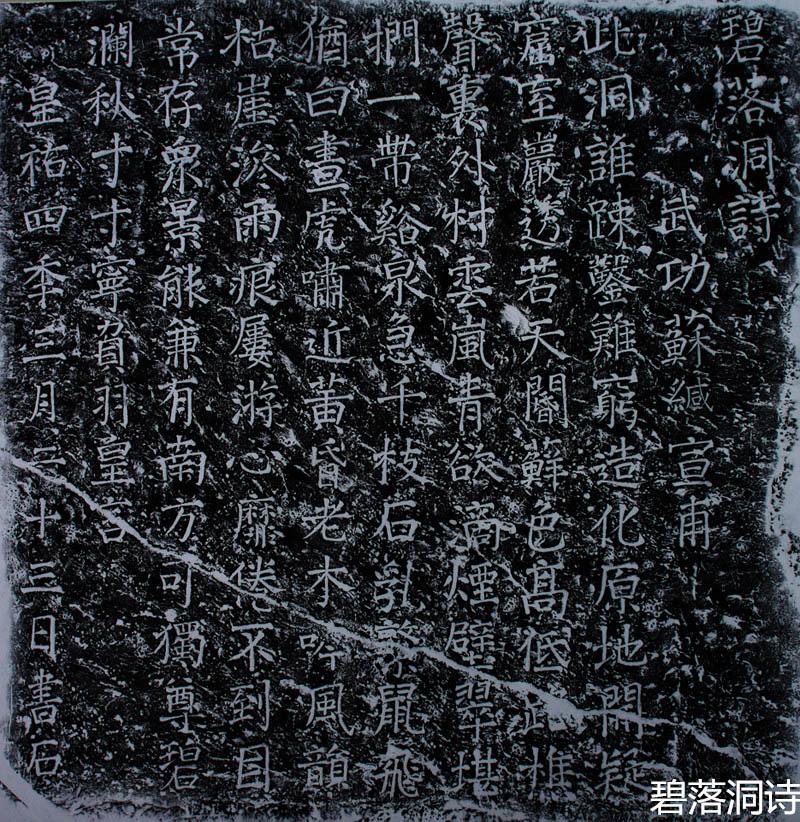 碧落洞詩
武功蘇緘宣甫
此洞誰踈鑿難窮造化原地開疑
窟室巖透若天閽蘚色高低樵
聲裏外村雲嵐青欲滴煙壁翠堪
捫一帶谿泉急千枝石乳繁鼠飛
猶白晝虎嘯近黃昏老木吟風韻
枯崖雨痕屢游心靡倦不到目
常存衆景能兼有南方可獨尊碧
瀾秋寸寸寧負羽皇言
皇祐四秊三月二十三日書石
碧落洞诗